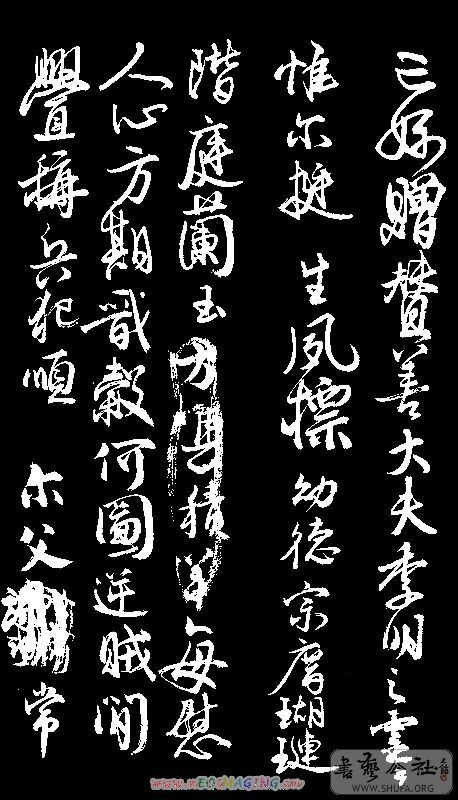 亡姪贈贊善大夫季明之靈曰
惟尔挺生夙標幼德宗廟瑚璉
階庭蘭玉方馮積善每慰
人心方期戩穀何圖逆賊閒
釁稱兵犯順尔父常
書藝公社
WWW.SHUFA.ORG